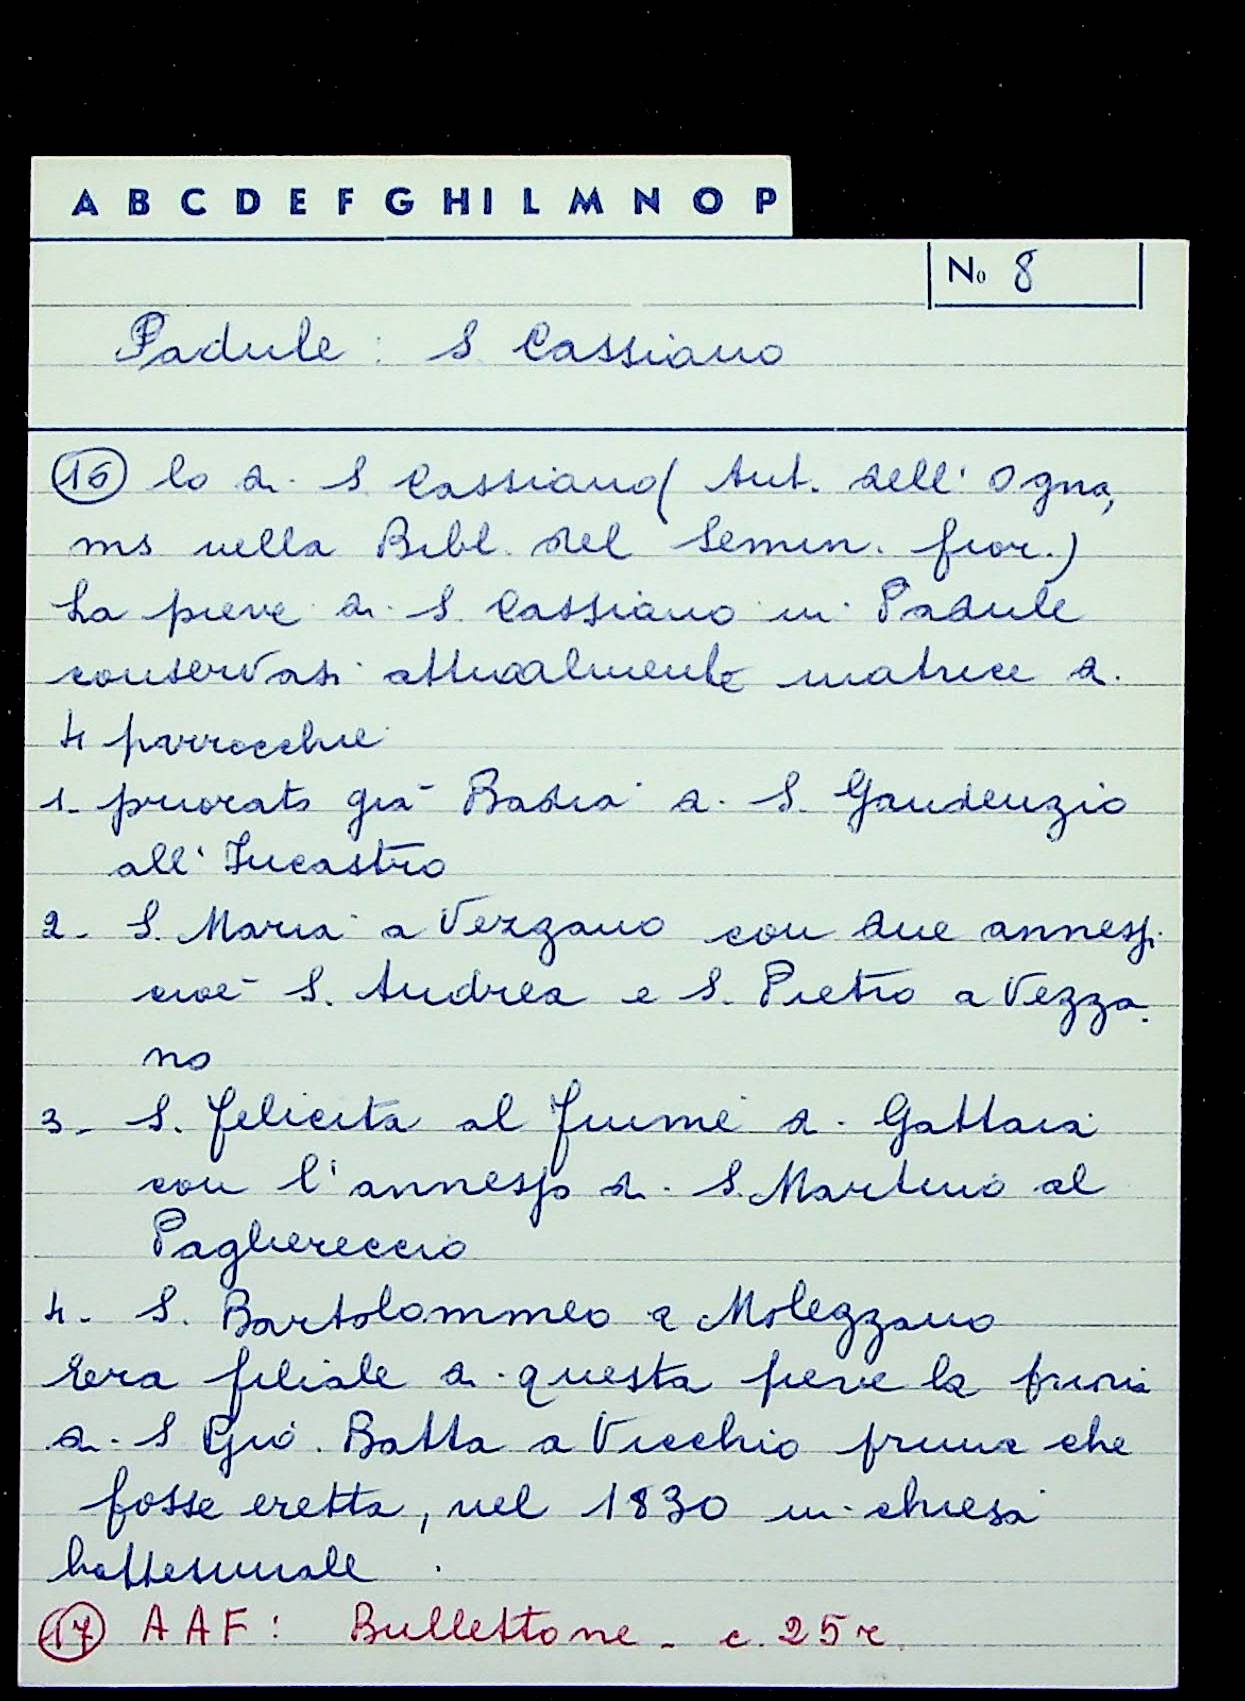 A B C D E F G H I L M N O P
No 8
Padule: S Cassiano
16 lo di S Cassiano ( Ant. dell' Ogna,
ms nella Bibl. del Semin. fior.)
La pieve di S. Cassiano in Padule
conservasi attualmente matrice di
4 parrocchie
1. priorato già Badia di S. Gaudenzio
all' Incastro
2. S. Maria a Vezzano con due annessi
cioè S. Andrea e S. Pietro a Vezza-
no
3. S. Felicita al fiume di Gattaia
con l'annesso di S. Martino al
Pagliereccio
4. S. Bartolommeo a Molezzano
Era filiale di questa pieve la prioria
di S Gio. Batta a Vicchio prima che
fosse eretta, nel 1830 in chiesa
battesimale.
17 AAF: Bullettone - c. 25r.